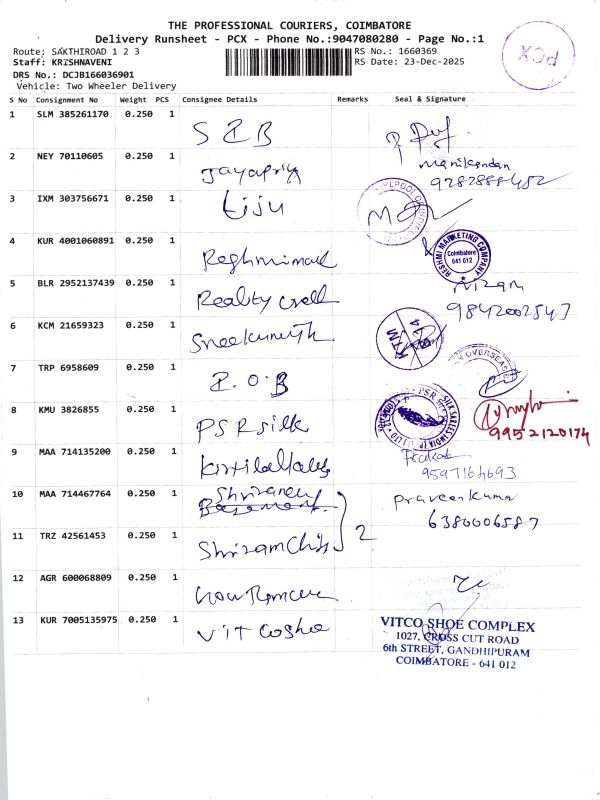 THE PROFESSIONAL COURIERS, COIMBATORE
Delivery Runsheet - PCX - Phone No.:9047080280 - Page No.:1
Route: SAKTHIROAD 1 2 3
RS No.: 1660369
Staff: KRISHNAVENI
RS Date: 23-Dec-2025
PCX
DRS No.: DCJB166036901
Vehicle: Two Wheeler Delivery
S No Consignment No Weight PCS Consignee Details Remarks Seal & Signature
1 SLM 385261170 0.250 1
Manikandan
2 NEY 70110605 0.250 1 Jayapriya
9282888452
3 IXM 303756671 0.250 1 Liju
4 KUR 4001060891 0.250 1
RESHMI MARKETING COMPANY
Coimbatore
641 012
5 BLR 2952137439 0.250 1 Reality
Nizam
9842002547
6 KCM 21659323 0.250 1
7 TRP 6958609 0.250 1 I.O.B
OVERSEAS
8 KMU 3826855 0.250 1 PSR silk
PSR SILK SAREES INDIA
9952120174
9 MAA 714135200 0.250 1
9597164693
10 MAA 714467764 0.250 1
Praveenkumar
6380006587
11 TRZ 42561453 0.250 1
2
12 AGR 600068809 0.250 1
13 KUR 7005135975 0.250 1
VITCO SHOE COMPLEX
1027, CROSS CUT ROAD
6th STREET, GANDHIPURAM
COIMBATORE - 641 012